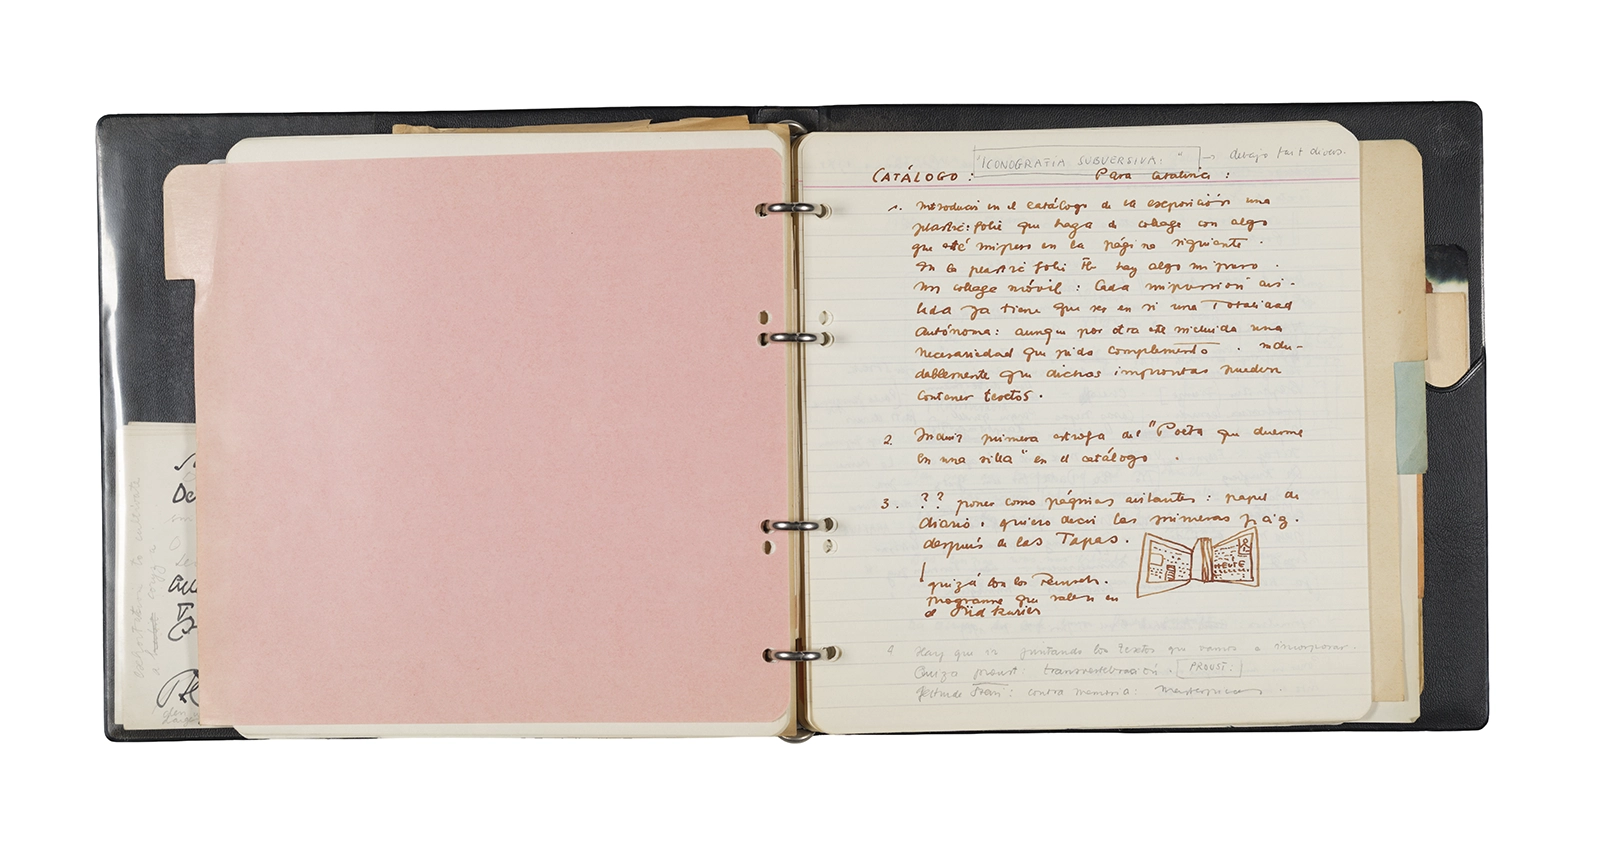 De
"ICONOGRAFIA SUBVERSIVA: " → debajo
CATÁLOGO : Para Catalina :
1. Introducir en el catálogo de la exposición una
plastic: folie que haga de collage con algo
que esté impreso en la página siguiente .
En la plastic folie hay algo impreso .
Un collage móvil : Cada impresión ais-
lada ya tiene que ser en si una Totalidad
autónoma : aunque por otra esté incluida una
necesariedad que pida complemento . indu-
dablemente que dichas improntas pueden
contener textos .
2. Incluir primera estrofa del "Poeta que duerme
en una silla" en el catálogo .
3. ? ? poner como páginas : papel de
diario , quiero decir las primeras pág.
después de las Tapas .
HEUTE
quizá con los Fernseh .
programme que salen en
el Südkurier
4 Hay que ir juntando los textos que vamos a incorporar.
Quiza proust : transvertebración . PROUST .
Gertrude Stein : contra memoria :